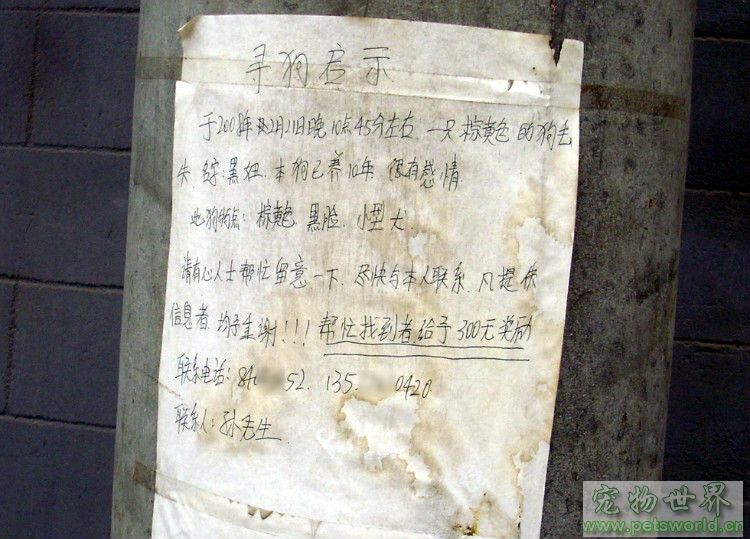 寻狗启示
于2008年2月21日晚10点45分左右 一只棕黄色的狗丢
失 名字:黑妞. 本狗已养10年 很有感情.
此狗特点: 棕黄色 黑脸. 小型犬.
请有心人士帮忙留意一下. 尽快与本人联系. 凡提供
信息者 均予重谢!!! 帮忙找到者给于300元奖励
联系电话: 84 52. 135. 0420
联系人: 孙先生
宠物世界
www.petsworld.cn